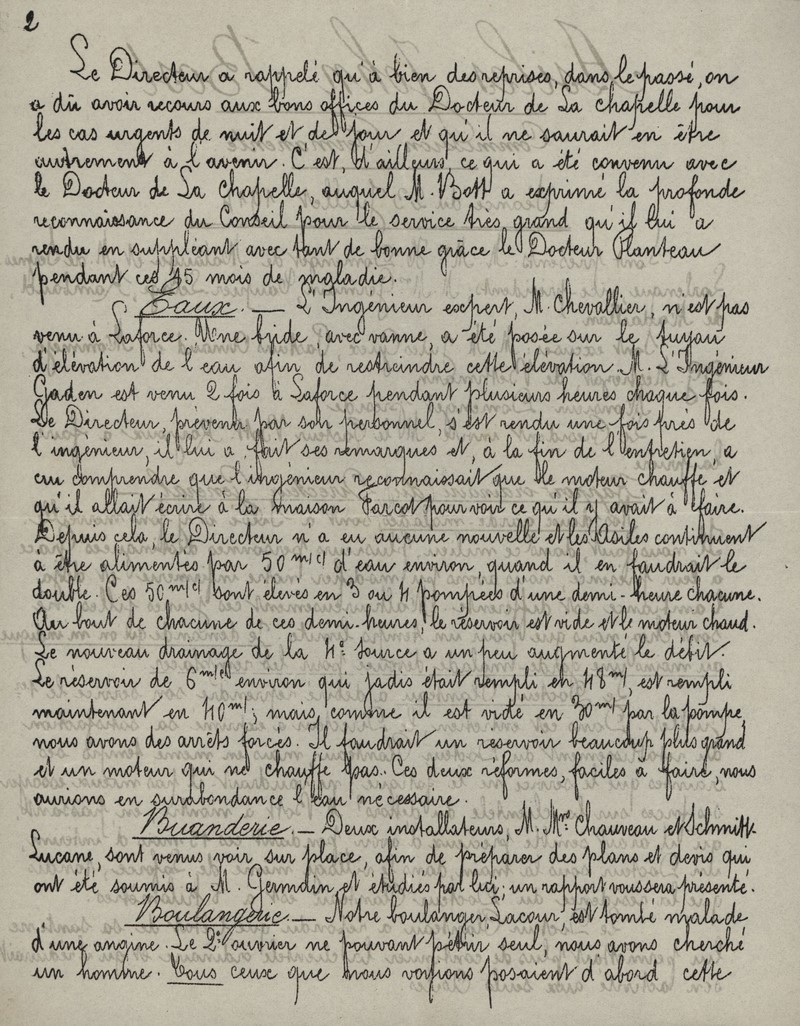 2
Le Directeur a rappelé qu'à bien des reprises, dans le passé, on
a dû avoir recours aux bons offices du Docteur de La Chapelle pour
les cas urgents de nuit et de jour et qu'il ne saurait en être
autrement à l'avenir. C'est, d'ailleurs, ce qui a été convenu avec
le Docteur de La Chapelle, auquel M. Bost a exprimé la profonde
reconnaissance du Conseil pour le service très grand qu'il lui a
rendu en suppléant avec tant de bonne grâce le Docteur Planteau
pendant ces 45 mois de maladie.
Eaux. — L'Ingénieur expert, M. Chevallier, n'est pas
venu à Laforce. Une bride, avec vanne, a été posée sur le tuyau
d'élévation de l'eau afin de restreindre cette élévation. M. L'Ingénieur
Gaden est venu 2 fois à Laforce pendant plusieurs heures chaque fois.
Le Directeur, prévenu par son personnel, s'est rendu une fois près de
l'ingénieur, il lui a fait ses remarques et, à la fin de l'entretien, a
cru comprendre que l'ingénieur reconnaissait que le moteur chauffe et
qu'il allait écrire à la maison Farcot pour voir ce qu'il y avait à faire.
Depuis cela, le Directeur n'a eu aucune nouvelle et les Asiles continuent
à être alimentés par 50 m/c/ d'eau environ, quand il en faudrait le
double. Ces 50 m/c/ sont élevés en 3 ou 4 pompées d'une demi-heure chacune.
Au bout de chacune de ces demi-heures, le réservoir est vide et le moteur chaud.
Le nouveau drainage de la 4e source a un peu augmenté le débit.
Le réservoir de 6 m/c/ environ qui jadis était rempli en 48 m/, est rempli
maintenant en 40 m/; mais, comme il est vidé en 30 m/ par la pompe,
nous avons des arrêts forcés. Il faudrait un réservoir beaucoup plus grand
et un moteur qui ne chauffe pas. Ces deux réformes, faciles à faire, nous
aurions en surabondance l'eau nécessaire.
Buanderie. — Deux installateurs, M. Mrs Chauveau et Schmitt-
Lucane, sont venus voir sur place, afin de préparer des plans et devis qui
ont été soumis à M. Germain et étudiés par lui; un rapport vous sera présenté.
Boulangerie. — Notre boulanger, Lacour, est tombé malade
d'une angine. Le 2e ouvrier ne pouvant pétrir seul, nous avons cherché
un homme. Tous ceux que nous voyions posaient d'abord cette